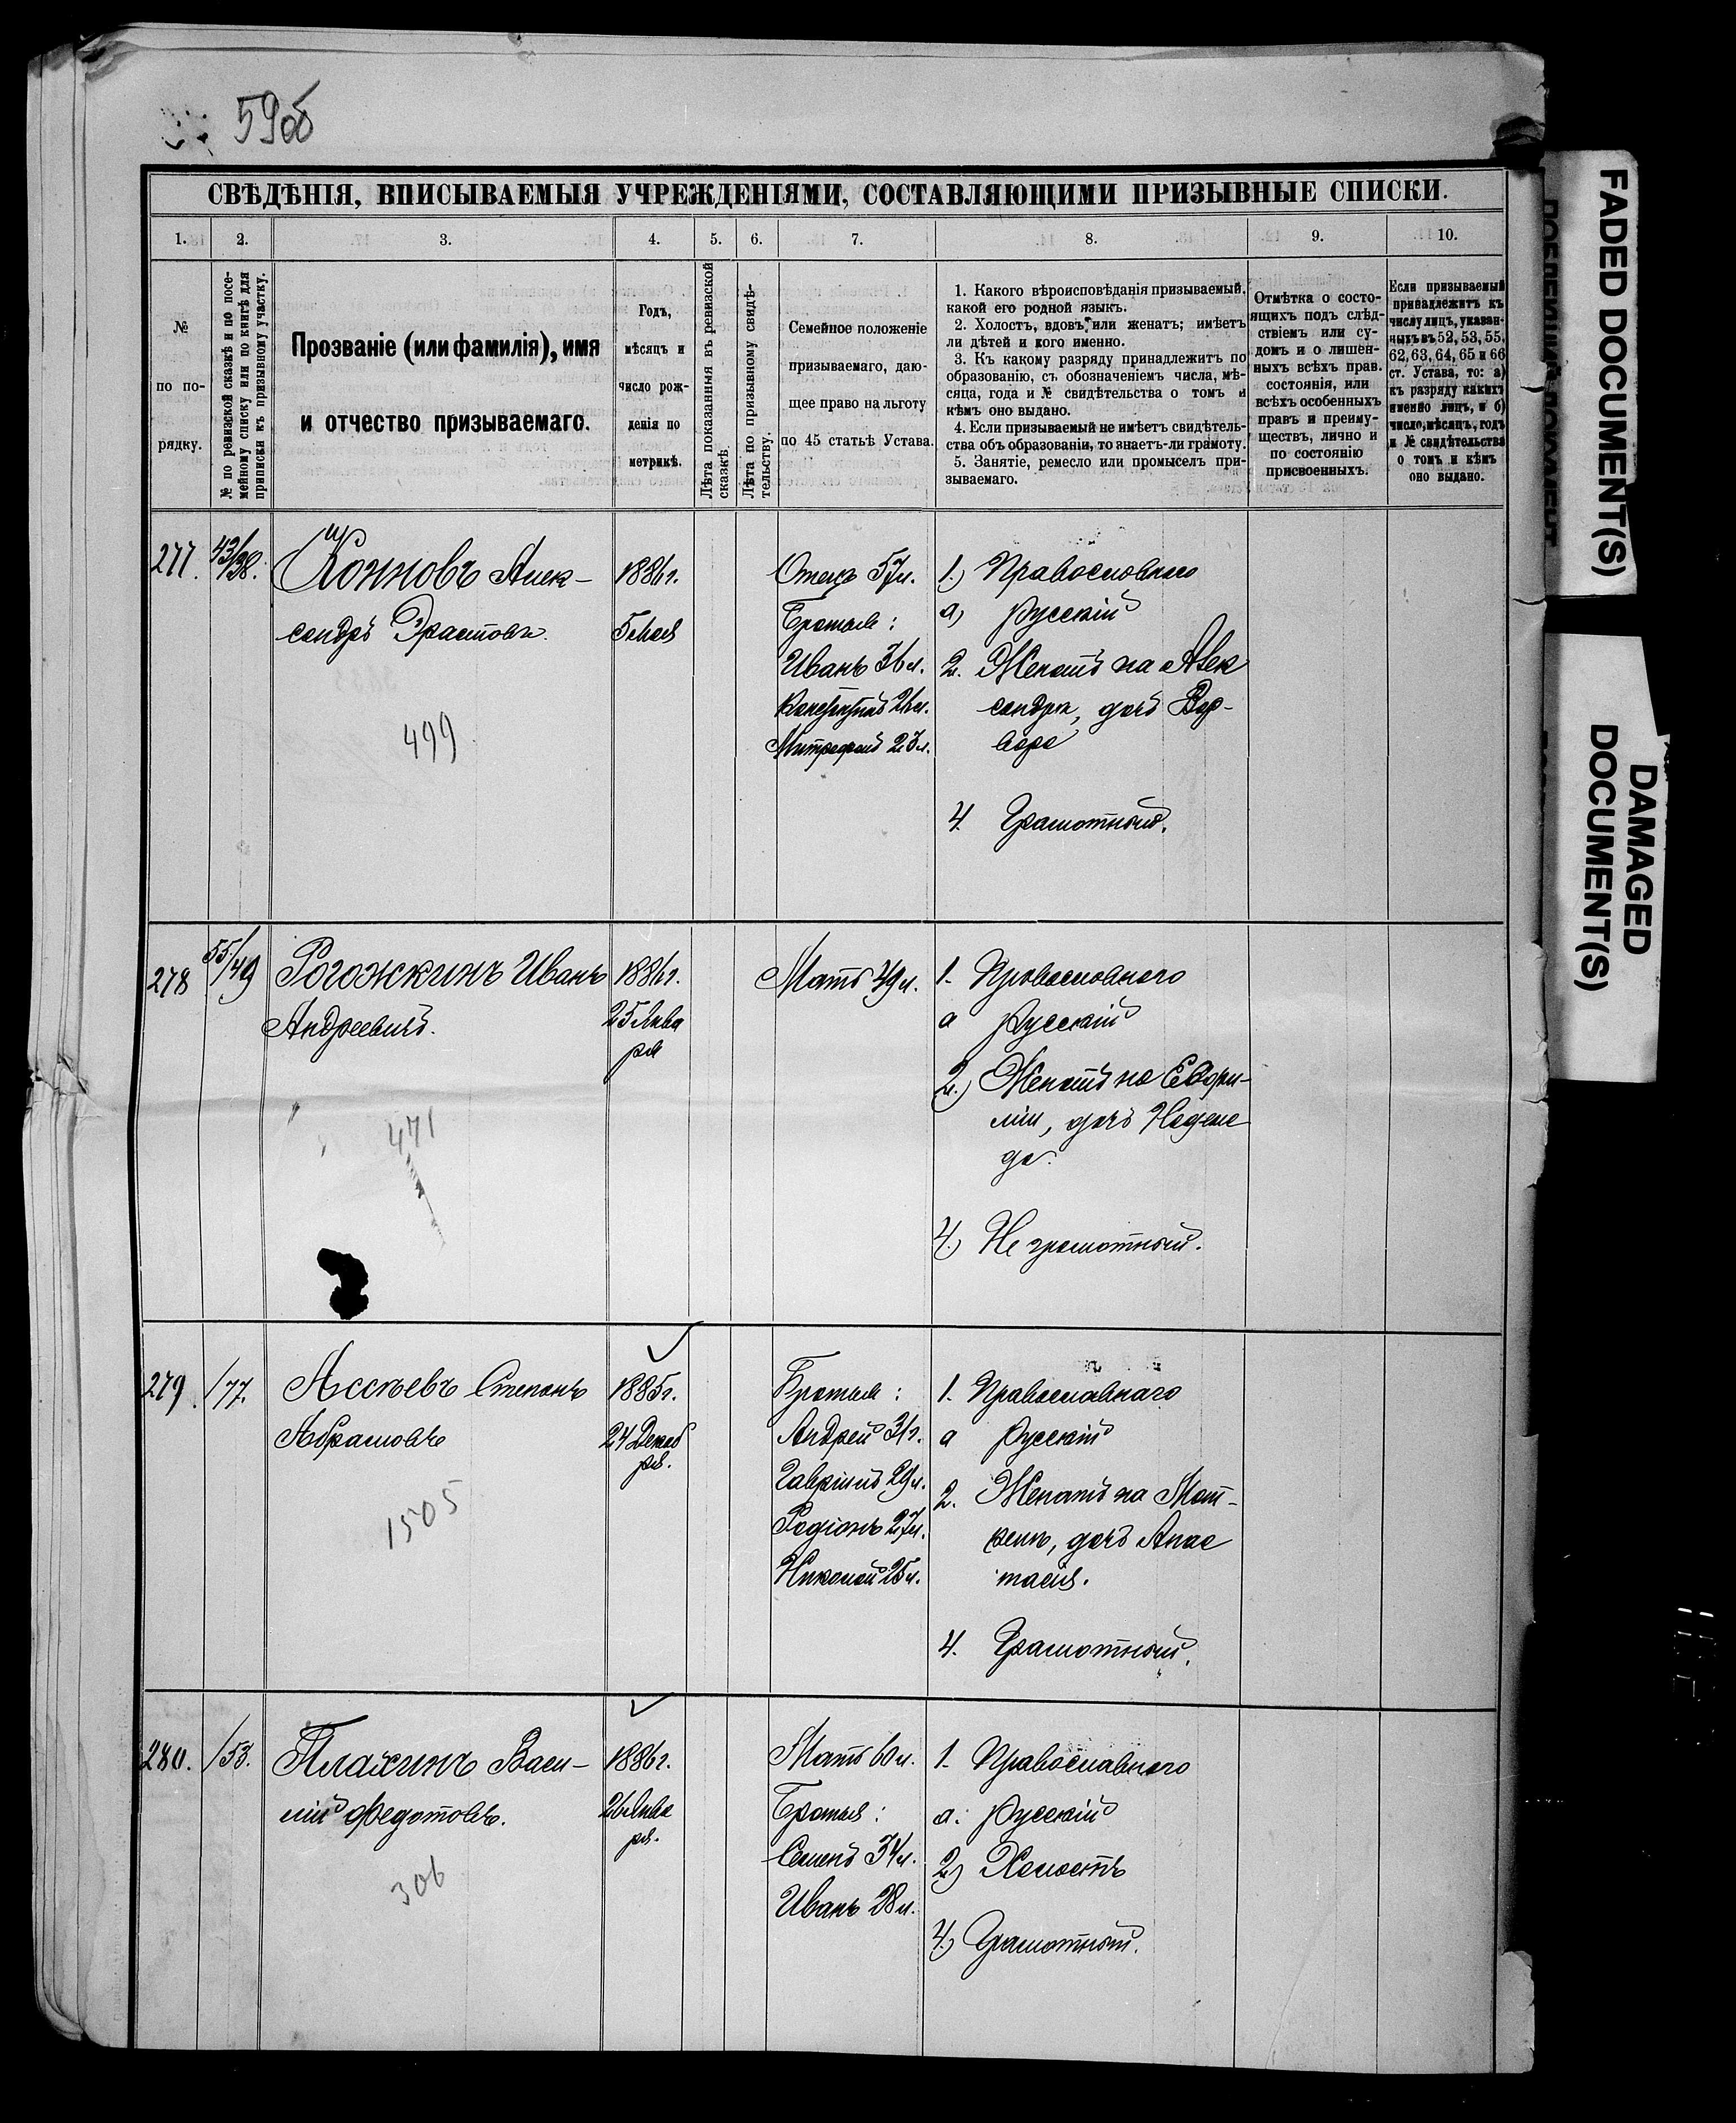 59об
СВѢДѢНІЯ, ВПИСЫВАЕМЫЯ УЧРЕЖДЕНІЯМИ, СОСТАВЛЯЮЩИМИ ПРИЗЫВНЫЕ СПИСКИ.
1. 2. 3. 4. 5. 6. 7. 8. 9. 10.
№
по по-
рядку.
№ по ревизской сказкѣ и по посе-
мейному списку или по книгѣ для
приписки къ призывному участку.
Прозваніе (или фамилія), имя
и отчество призываемаго.
Годъ,
мѣсяцъ и
число рож-
денія по
метрикѣ.
Лѣта показанныя въ ревизской
сказкѣ.
Лѣта по призывному свидѣ-
тельству.
Семейное положеніе
призываемаго, даю-
щее право на льготу
по 45 статьѣ Устава.
1. Какого вѣроисповѣданія призываемый.
какой его родной языкъ.
2. Холостъ, вдовъ, или женатъ; имѣетъ
ли дѣтей и кого именно.
3. Къ какому разряду принадлежитъ по
образованію, съ обозначеніемъ числа, мѣ-
сяца, года и № свидѣтельства о томъ и
кѣмъ оно выдано.
4. Если призываемый не имѣетъ свидѣтель-
ства объ образованіи, то знаетъ-ли грамоту.
5. Занятіе, ремесло или промыселъ при-
зываемаго.
Отмѣтка о состо-
ящихъ подъ слѣд-
ствіемъ или су-
домъ и о лишен-
ныхъ всѣхъ прав.
состоянія, или
всѣхъ особенныхъ
правъ и преиму-
ществъ, лично и
по состоянію
присвоенныхъ.
Если призываемый
принадлежитъ къ
числу лицъ, указан-
ныхъ въ 52, 53, 55,
62, 63, 64, 65 и 66
ст. Устава, то: а)
къ разряду какихъ
именно лицъ, и б)
число, мѣсяцъ, годъ
и № свидѣтельства
о томъ и кѣмъ
оно выдано.
277.
43/38.
Конновъ Алек-
сандръ Эрастовъ.
499
1886г.
5 Мая
Отецъ 57л.
Братья:
Иванъ 36л.
Митрофанъ 23л.
1.) Православнаго
а) Русскій
2. Женатъ на Алек
сандрѣ, дочь Вар-
вара
4. Грамотный.
278
55/49
Рогожкинъ Иванъ
Андреевичъ.
471
1886г.
25 Янва
ря
Мать 49л.
1. Православнаго
а Русскій
2.) Женатъ на Евфи-
міи, дочь Надеж
да.
4.) Не грамотный.
279
/77.
Ассѣевъ Степанъ
Абрамовъ
1505
1885г.
24 Декаб
ря.
Братья:
Андрей 31г.
Гавріилъ 29л.
Родіонъ 27л.
Николай 25л.
1. Православнаго
а Русскій
2. Женатъ на Мат-
ренѣ, дочь Анас
тасія.
4. Грамотный.
280.
/53.
Плахинъ Васи-
лій Федотовъ.
306
1886г.
26 Янва
ря.
Мать 60л.
Братья:
Семенъ 34л.
Иванъ 28л.
1. Православнаго
а. Русскій
2) Холостъ
4.) Грамотный.
FADED DOCUMENT(S)
DAMAGED
DOCUMENT(S)